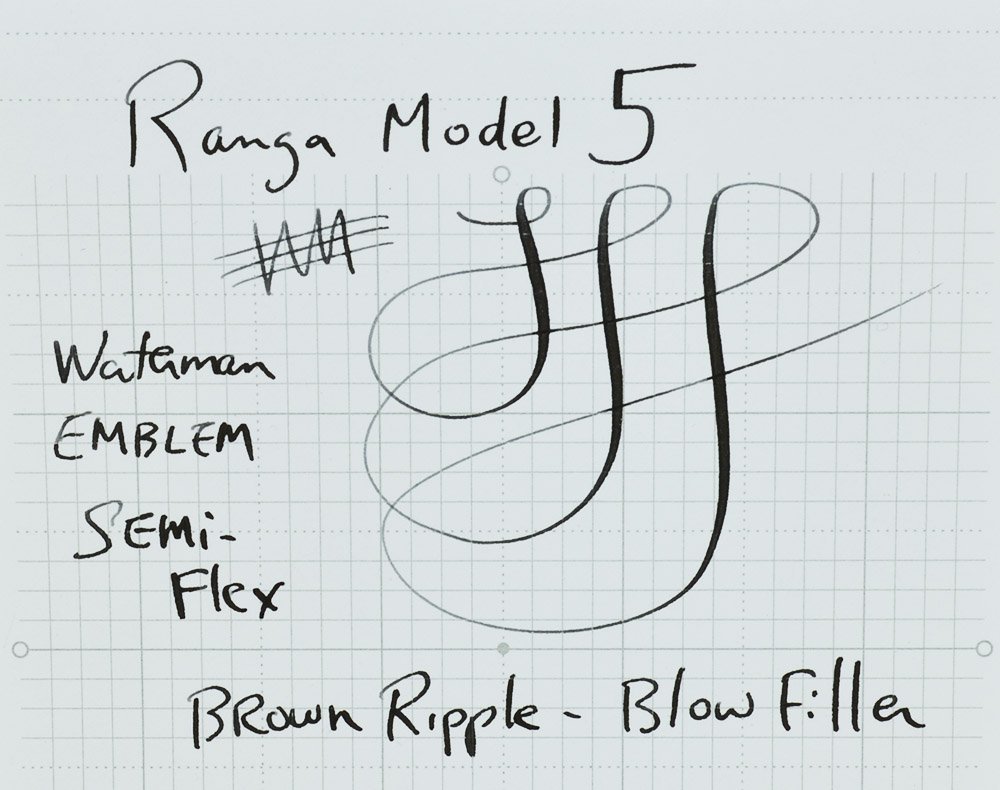 Ranga Model 5
Waterman
EMBLEM
SEMi-
Flex
BROWN Ripple - Blow Filler